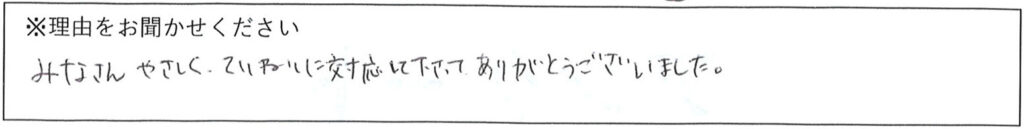 ※理由をお聞かせください
みなさん やさしく、ていねいに対応して下さって ありがとうございました。